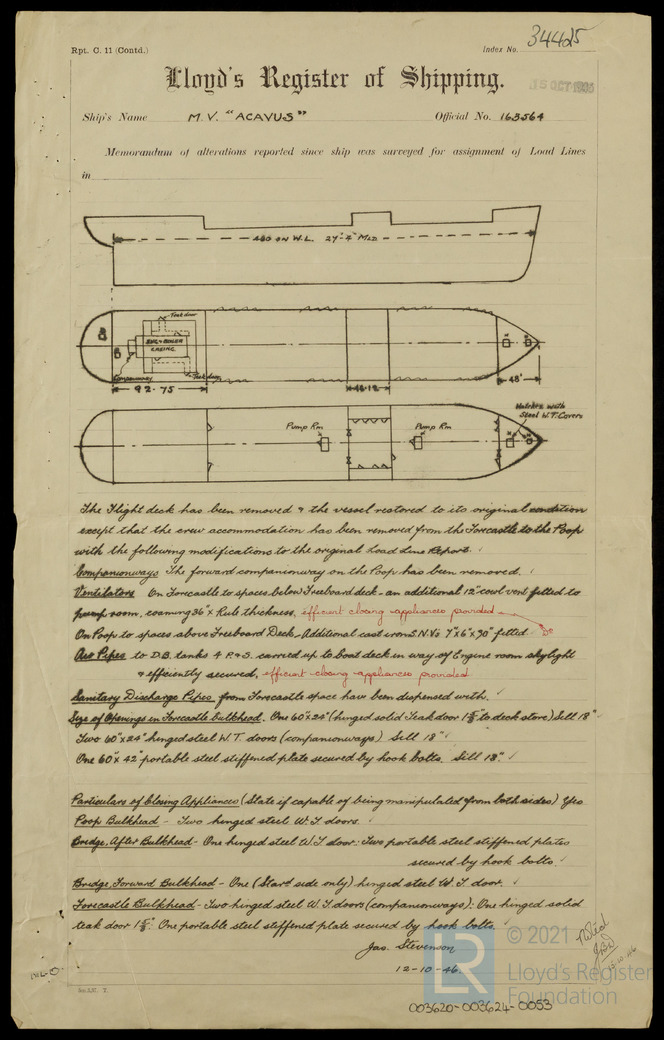 Rpt. C. 11 (Contd.)
Index No. 34425
Lloyd's Register of Shipping.
Ship's Name M.V. "ACAVUS" Official No. 163564
Memorandum of alterations reported since ship was surveyed for assignment of Load Lines
in
460 ON W.L. 27'-4" MLD
Teak door
ENG & BOILER
CASING
Companionway
Teak door
92.75
48.12
48'
Hatches with
Steel W.T. Covers
Pump Rm
Pump Rm
The Flight deck has been removed & the vessel restored to its original condition
except that the crew accommodation has been removed from the Forecastle to the Poop
with the following modifications to the original Load Line Report.
Companionways The forward companionway on the Poop has been removed.
Ventilators On Forecastle to spaces below Freeboard deck - an additional 12" cowl vent fitted to
pump room, coaming 36" x Rule thickness, efficient closing appliances provided
On Poop to spaces above Freeboard Deck - Additional cast iron S.N.Vs 7"x6"x30" fitted Do
Air Pipes to D.B. tanks 4 P.&S. carried up to boat deck in way of Engine room skylight
& efficiently secured, efficient closing appliances provided
Sanitary Discharge Pipes from Forecastle space have been dispensed with.
Size of Openings in Forecastle bulkhead. One 60"x24" (hinged solid Teak door to deck store) Sill 18"
Two 60"x24" hinged steel W.T. doors (companionways) Sill 18"
One 60"x 42" portable steel stiffened plate secured by hook bolts. Sill 18".
Particulars of Closing Appliances (State if capable of being manipulated from both sides) Yes
Poop Bulkhead - Two hinged steel W.T. doors.
Bridge, After Bulkhead - One hinged steel W.T door: Two portable steel stiffened plates
secured by hook bolts.
Bridge, Forward Bulkhead - One (Starbd side only) hinged steel W.T door.
Forecastle Bulkhead - Two hinged steel W.T doors (companionways): One hinged solid
teak door. One portable steel stiffened plate secured by hook bolts.
Jas. Stevenson
12-10-46.
Noted
15-10-46
© 2021
LR
Lloyd's Register
Foundation
003620-003624-0053